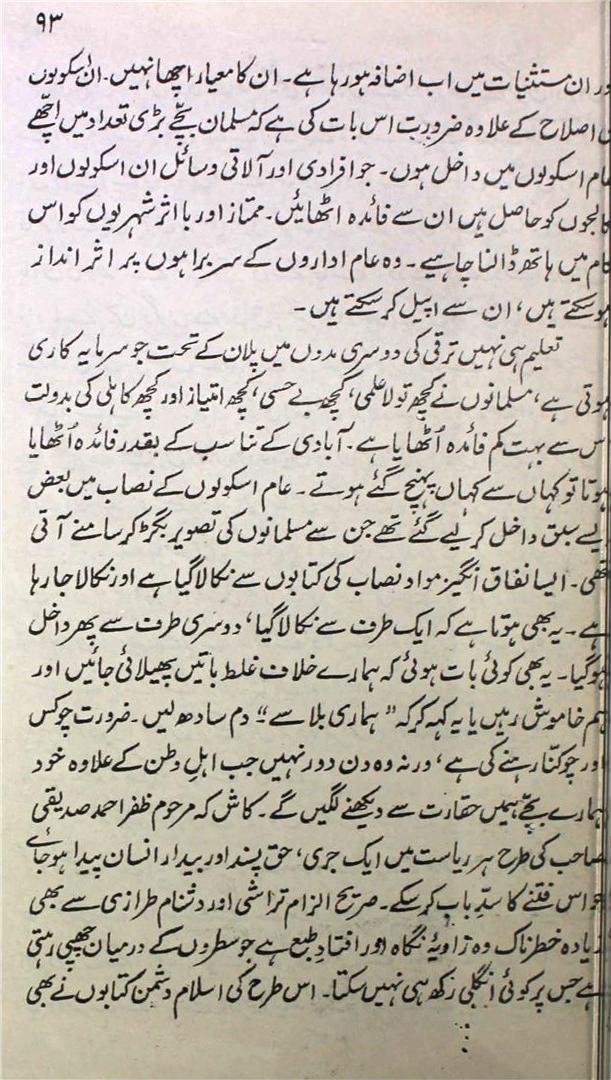 ۹۳
ور ان مستثنیات میں اب اضافہ ہو رہا ہے۔ ان کا معیار اچھا نہیں۔ ان اسکولوں
کی اصلاح کے علاوہ ضرورت اس بات کی ہے کہ مسلمان بچّے بڑی تعداد میں اچّھے
عام اسکولوں میں داخل ہوں۔ جو افرادی اور آلاتی وسائل ان اسکولوں اور
کالجوں کو حاصل ہیں ان سے فائدہ اٹھائیں۔ ممتاز اور با اثر شہریوں کو اس
کام میں ہاتھ ڈالنا چاہیے۔ وہ عام اداروں کے سربراہوں پر اثر انداز
ہو سکتے ہیں، ان سے اپیل کر سکتے ہیں۔
تعلیم ہی نہیں ترقی کی دوسری مدوں میں پلان کے تحت جو سرمایہ کاری
ہوتی ہے، مسلمانوں نے کچھ تو لاعلمی، کچھ بے حسی، کچھ امتیاز اور کچھ کاہلی کی بدولت
اس سے بہت کم فائدہ اُٹھایا ہے۔ آبادی کے تناسب کے بقدر فائدہ اُٹھایا
ہوتا تو کہاں سے کہاں پہنچ گئے ہوتے۔ عام اسکولوں کے نصاب میں بعض
ایسے سبق داخل کر لیے گئے تھے جن سے مسلمانوں کی تصویر بگڑ کر سامنے آتی
تھی۔ ایسا نفاق انگیز مواد نصاب کی کتابوں سے نکالا گیا ہے اور نکالا جا رہا
ہے۔ یہ بھی ہوتا ہے کہ ایک طرف سے نکالا گیا، دوسری طرف سے پھر داخل
ہو گیا۔ یہ بھی کوئی بات ہوئی کہ ہمارے خلاف غلط باتیں پھیلائی جائیں اور
ہم خاموش رہیں یا یہ کہہ کر کہ "ہماری بلا سے" دم سادھ لیں۔ ضرورت چوکس
اور چوکنّا رہنے کی ہے، ورنہ وہ دن دور نہیں جب اہلِ وطن کے علاوہ خود
ہمارے بچّے ہمیں حقارت سے دیکھنے لگیں گے۔ کاش کہ مرحوم ظفر احمد صدیقی
صاحب کی طرح ہر ریاست میں ایک جری، حق پسند اور بیدار انسان پیدا ہو جائے
جو اس فتنے کا سدِّ باب کر سکے۔ صریح الزام تراشی اور دشنام طرازی سے بھی
زیادہ خطرناک وہ زاویۂ نگاہ اور افتادِ طبع ہے جو سطروں کے درمیان چھپی رہتی
ہے جس پر کوئی انگلی رکھ ہی نہیں سکتا۔ اس طرح کی اسلام دشمن کتابوں نے بھی